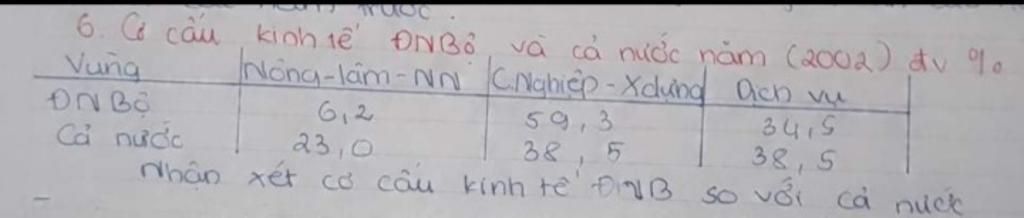 trước.
6. Cơ cấu kinh tế ĐNBộ và cả nước năm (2002) đv %
Vùng Nông-lâm-NN C.Nghiệp-Xdựng Dịch vụ
ĐNBộ 6,2 59,3 34,5
Cả nước 23,0 38,5 38,5
Nhận xét cơ cấu kinh tế ĐNB so với cả nước